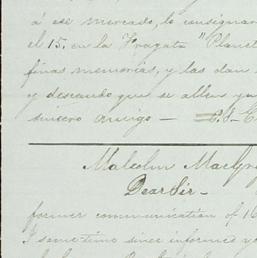 á ese mercado, lo consignar
el 15. en la Fragata "Planet
finas memorias, y las dan
y deseando que se allen ya
sincero amigo —
Malcolm MacGr
Dear Sir —
former communication of 16
I some time since informed yo